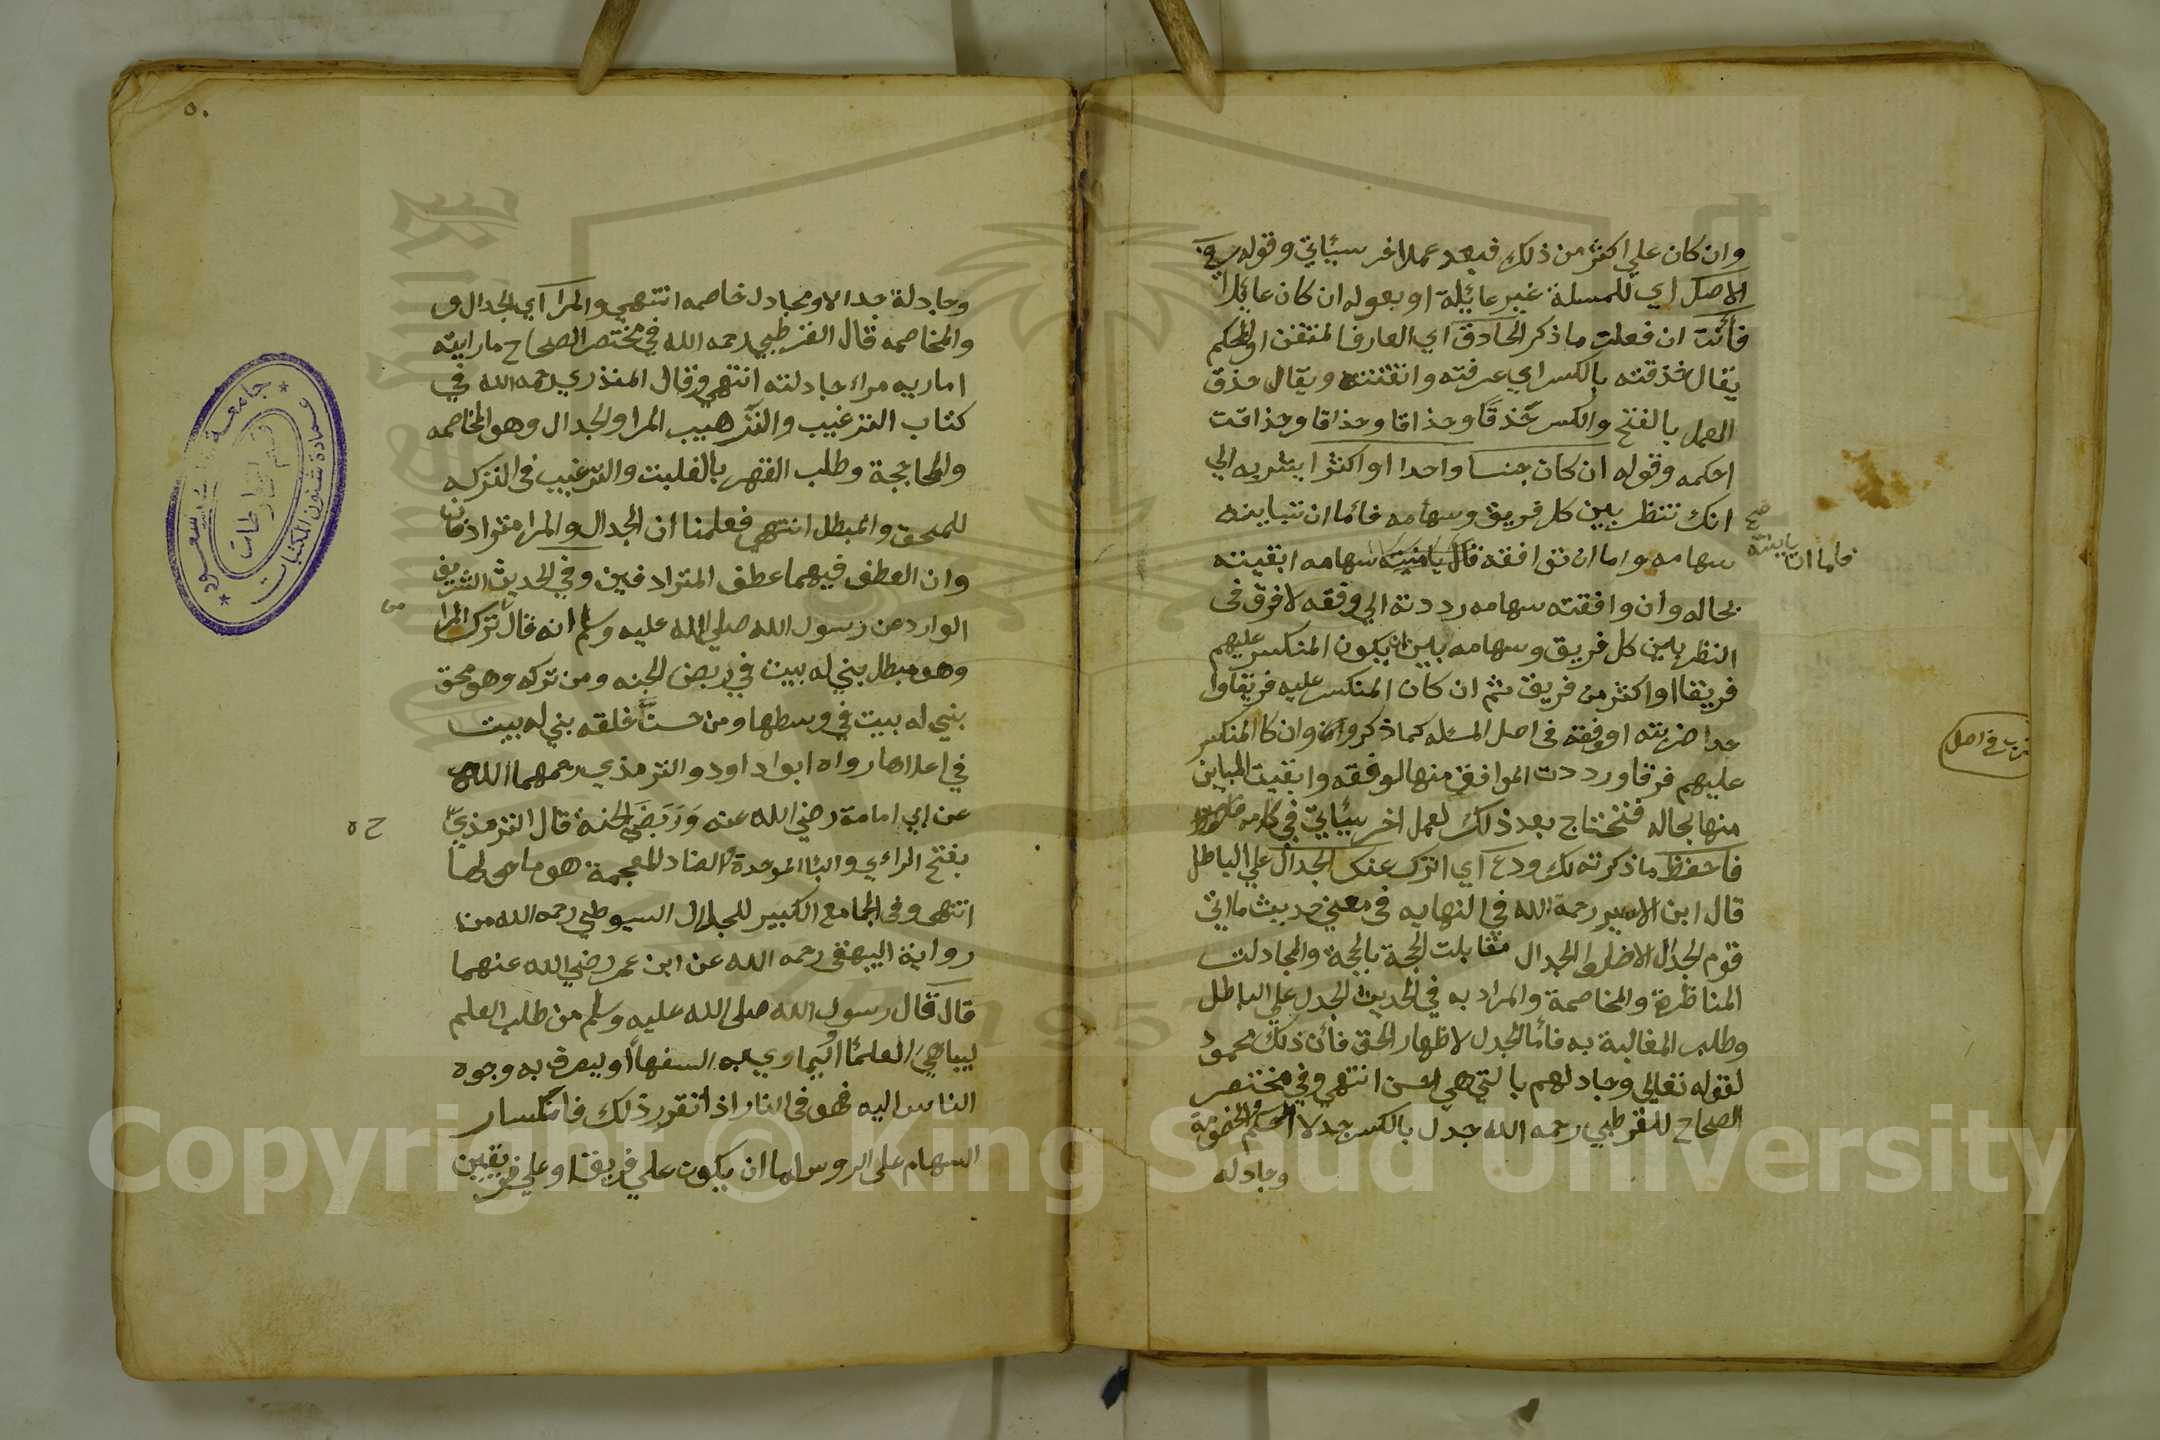 وان كان علي اكثر من ذلك فبعد عملا اخر سيئاتي وقوله في
الاصل اي للمسلة غير عائلة او بعوله ان كان عائلا
فأنت ان فعلت ما ذكر الحاذق اي العارف المتقن او المحكم
يقال حذقته بالكسر اي عرفته واتقنته ويقال حذق
العمل بالفتح والكسر حذقًا وحذاقا وحذاقا وحذاقت
احكمه وقوله ان كان جنسا واحدا او اكثر ايشر به الي
انك تنظر بين كل فريق وسهامه فائما ان تباينه
صح
فاما ان تباينه
سهامه واما ان توافقه فان باينته سهامه ابقيته
بحاله وان وافقته سهامه رددته الي وفقه لا فرق في
النظر بين كل فريق وسهامه بين ان يكون المنكسر عليهم
فريقا او اكثر من فريق ثم ان كان المنكسر عليه فريقا وا
حدا ضربته او وفقه في اصل المسئله كما ذكروا وان كا المنكسر
عليهم فرقا ورددت الموافق منها لوفقه وابقيت المباين
منها بحاله فتحتاج بعد ذلك لعمل اخر سيئاتي في كلامه
فاحفظ ما ذكرته لك ودع اي اترك عنك الجدال علي الباطل
قال ابن الاسير رحمة الله في النهايه في معني حديث ما اتي
قوم الجدال الا ضلوا الجدال مقابلت الحجة بالحجة والمجادلت
المناظرة والمخاصمة والمراد به في الحديث الجدل علي الباطل
وطلب المغالبة به فائما الجدل لاظهار الحق فائن ذلك محمود
لقوله تعالي وجادلهم بالتي هي احسن انتهي وفي مختصر
الصحاح للقرطبي رحمه الله جدل بالكسر جدلا احكم الخصومة
وجادله
ضرب في اصل
٥٠
وجادلة جدالا ومجادل خاصمه انتهي والمرا اي الجدال و
والمخاصمه قال القرطبي رحمه الله في مختصر الصحاح ماراايته
اماريه مراء جادلته انتهي وقال المنذري رحمه الله في
كتاب الترغيب والترهيب المرا والجدال وهو المخاصمه
والمحاججة وطلب القهر بالغلبت والترغيب في التركه
للمحق والمبطل انتهي فعلمنا ان الجدال والمرا مترادفان
وان العطف فيهما عطف المترادفين وفي الحديث الشريف
الوارد عن رسول الله صلي الله عليه وسلم انه قال ترك المرا
من
وهو مبطل بني له بيت في ربض الجنه ومن تركه وهو محق
بني له بيت في وسطها ومن حسن خلقه بني له بيت
في اعلاها رواه ابوا داود والترمذي رحمهما الله
عن ابي امامة رضي الله عنه وَرَبَضَ الجنة قال الترمذي
ح ه
بفتح الرائي والبائا الموحدة والضاد المعجمة هو ما حولها
انتهي وفي الجامع الكبير للجلال السيوطي رحمه الله من
رواية البيهقي رحمه الله عن ابن عمر رضي الله عنهما
قال قال رسول الله صلي الله عليه وسلم من طلب العلم
ليباهي العلمائا اليماري به السفها او يصرف به وجوه
الناس اليه فهو في النار اذا تقرر ذلك فانكسار
السهام علي الروس اما ان يكون علي فريقا وعلي فريقين
جامعة الملك سعود
عمادة شئون المكتبات
قسم المخطوطات
King Saud University
1957
Copyright © King Saud University